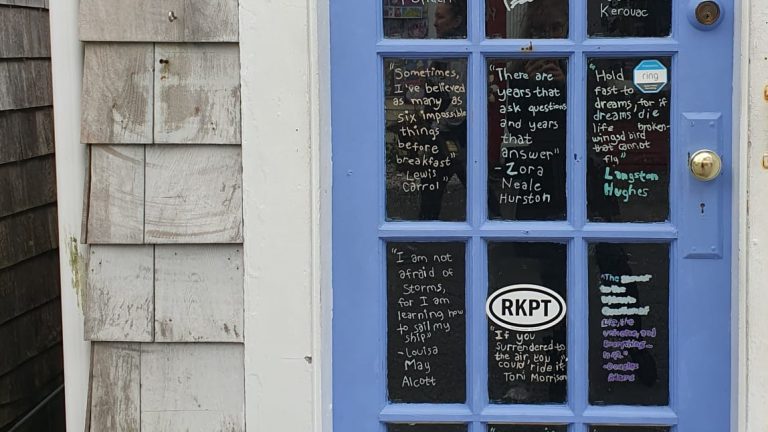 Kerouac
"Sometimes,
I've believed
as many as
six impossible
things
before
breakfast"
-Lewis
Carrol
"There are
years that
ask questions
and years
that
answer"
-Zora
Neale
Hurston
ring
"Hold
fast to
dreams, for if
dreams die
life broken-
winged bird
that cannot
fly"
Langston
Hughes
"I am not
afraid of
Storms,
for I am
learning how
to sail my
ship"
-Louisa
May
Alcott
RKPT
"If you
surrendered to
the air, you
could ride it"
Toni Morrison
"The answer
to the
Ultimate
Question of
life, the
universe, and
Everything...
is 42."
-Douglas
Adams